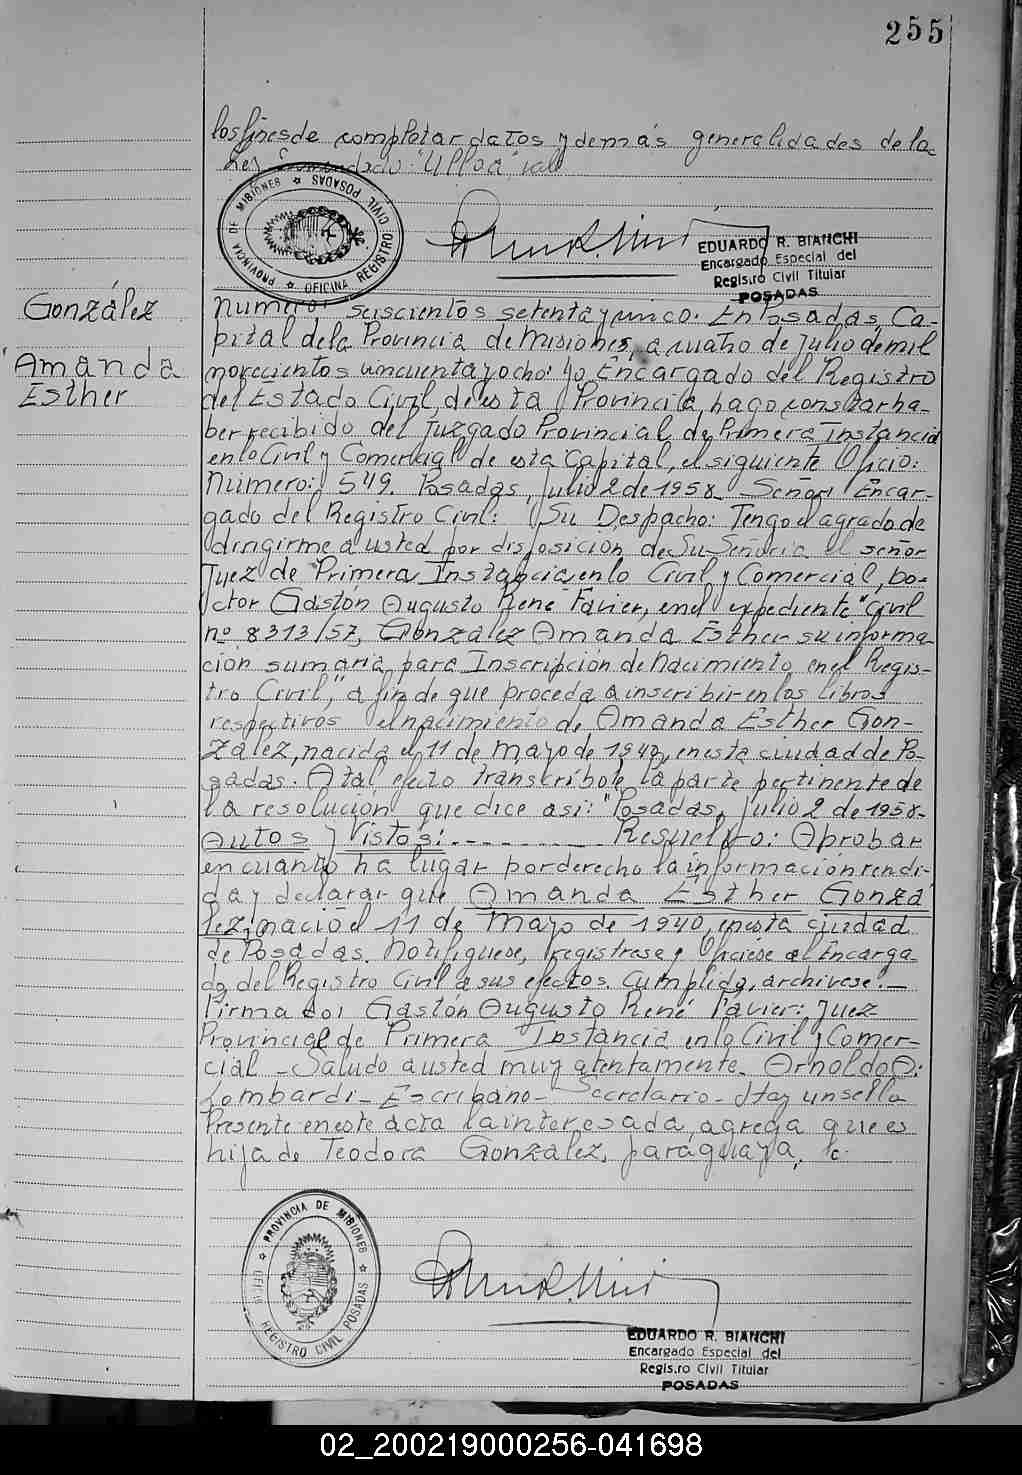 255
los fines de completar datos y demás generalidades de la
Ley Enmendado: "Ulloa", vale
PROVINCIA DE MISIONES ★ POSADAS
OFICINA REGISTRO CIVIL ★
EDUARDO R. BIANCHI
Encargado Especial del
Regis.ro Civil Titular
POSADAS
González
Amanda
Esther
Numero: seiscientos setenta y cinco. En Posadas, Ca-
pital de la Provincia de Misiones, a cuatro de julio de mil
novecientos cincuenta y ocho: yo Encargado del Registro
del Estado Civil, de esta Provincia, hago constar ha-
ber recibido del Juzgado Provincial de Primera Instancia
en lo Civil y Comercial de esta Capital, el siguiente Oficio:
Numero: 549. Posadas, Julio 2 de 1958. Señor Encar-
gado del Registro Civil: Su Despacho: Tengo el agrado de
dirigirme a usted por disposición de Su Señoria el señor
Juez de Primera Instancia en lo Civil y Comercial, Do-
ctor Gastón Augusto René Favier, en el expediente "Civil
nº 8313/57, González Amanda Esther su informa-
ción sumaria para Inscripción de Nacimiento en el Regis-
tro Civil," a fin de que proceda a inscribir en los libros
respectivos el nacimiento de Amanda Esther Gon-
zález, nacida el 11 de Mayo de 1940, en esta ciudad de Po-
sadas. A tal efecto transcribole la parte pertinente de
la resolución que dice asi: "Posadas, Julio 2 de 1958-
Autos y Vistos: - - - - - - - - - Resuelvo: Aprobar
en cuanto ha lugar por derecho la información rendi-
da y declarar que Amanda Esther Gonzá
lez, nació el 11 de Mayo de 1940, en esta ciudad
de Posadas. Notifiquese, registrese y Oficiese al Encarga-
do del Registro Civil a sus efectos. Cumplido, archivese.-
Firmado: Gastón Augusto René Favier: Juez-
Provincial de Primera Instancia en lo Civil y Comer-
cial - Saludo a usted muy atentamente. Arnoldo A.
Lombardi- Escribano- Secretario- Hay un sello
Presente en este acta la interesada, agrega que es
hija de Teodora González, paraguaya,
★ PROVINCIA DE MISIONES ★
OFICINA REGISTRO CIVIL POSADAS
EDUARDO R. BIANCHI
Encargado Especial del
Regis.ro Civil Titular
POSADAS
02_200219000256-041698